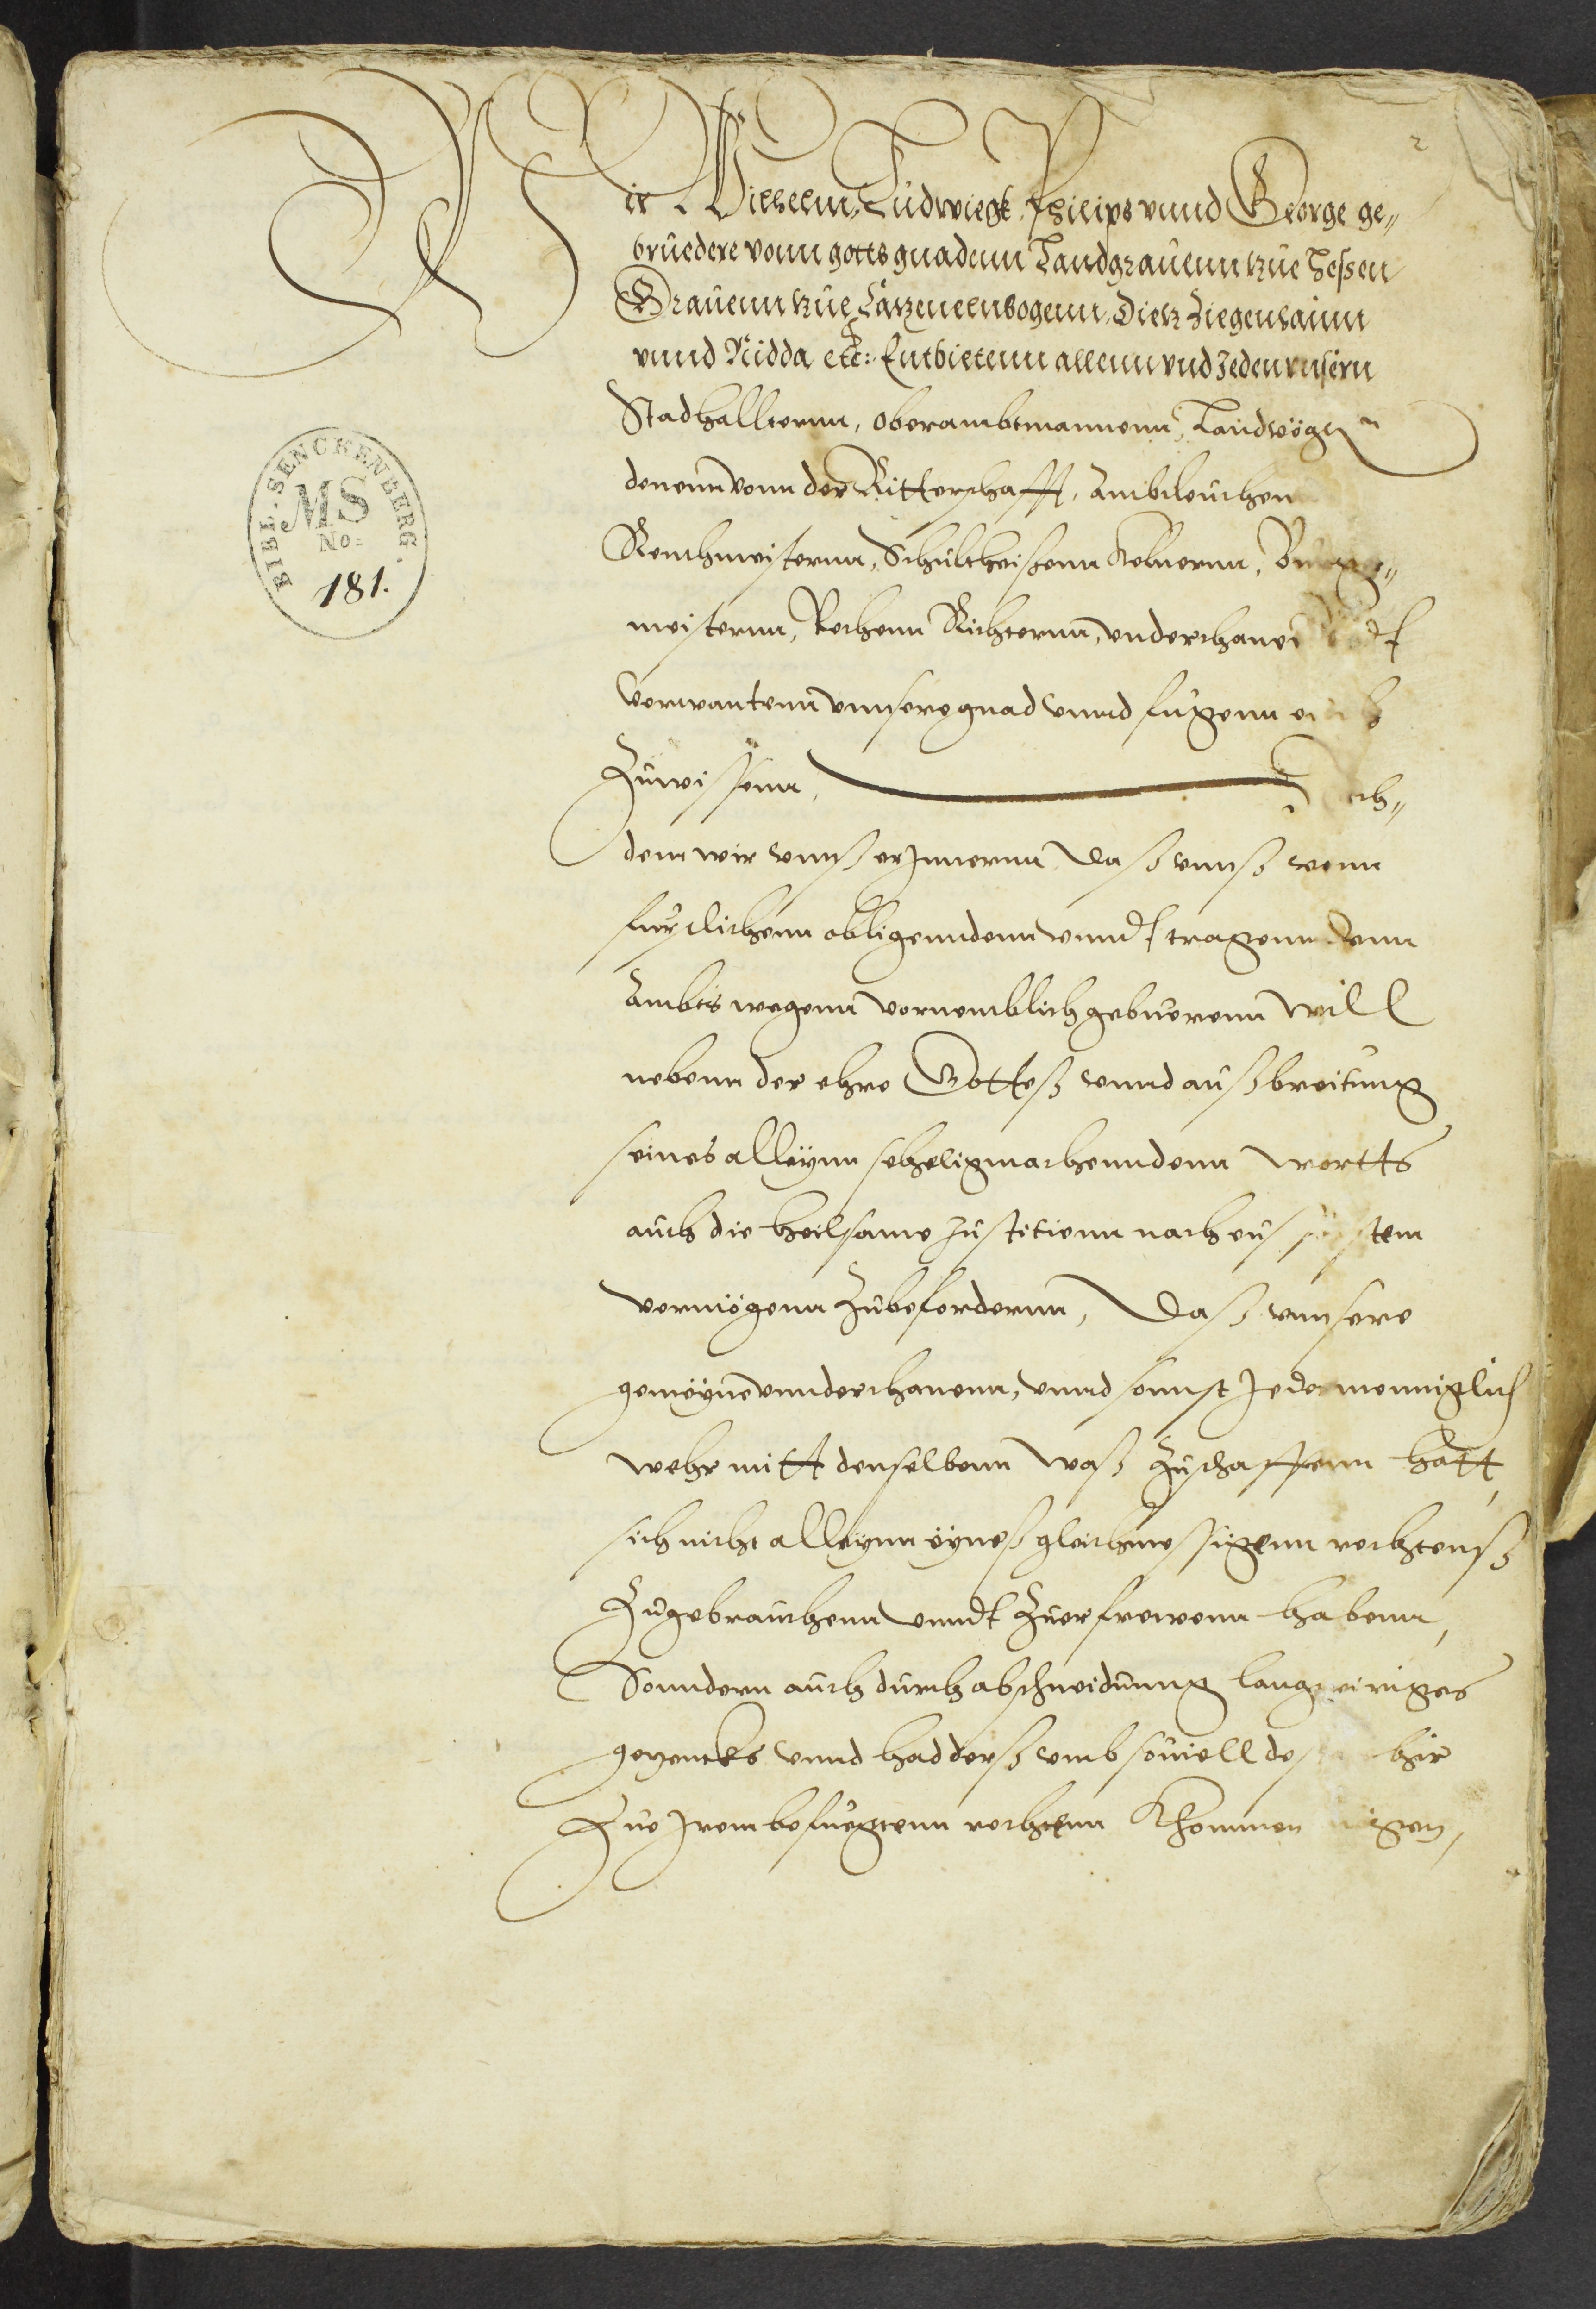 2
Wir Wilhelm, Ludwiegk, Philips vnnd George ge„
bruedere vonn gotts gnadenn Landgrauenn zue Heßen
Grauenn zue Catzenelnbogenn, Dietz Ziegenhainn
vnnd Nidda etc: Entbietenn allenn vnd Jeden vnsern
Stadhallternn, Oberambtmannenn, Landvögten
denenn vonn der Ritterschafft, Ambtleuthen
Rentmeisternn, Schultheißenn Kelnernn, Burge„
meisternn, Rethenn Richternn, vnderthanen vndt
verwantenn vnnsere gnad vnnd fuegenn euch
Zuwissenn, Nach„
dem wir vnnß erJnnernn daß vnnß vonn
furstlichenn obligenndenn vnndt tragenndenn
Ambts wegenn vornemblich gebuerenn will
nebenn der ehre Gotteß vnnd außbreitung
seines alleynn sehligmachenndenn wortts
auch die heilsame Justitienn nach eusserstem
vermögenn Zubefordernn, Daß vnnsere
gemeyne vnnderthanenn, vnnd sonnst Jedermenniglich
wehr mitt denselbenn waß Zuschaffenn hatt,
sich nicht alleynn eyneß gleichmessigenn rechtenß
Zugebrauchenn vnndt Zuerfrewenn habenn,
Sonndern auch durch abschneidung langweiriges
gezencks vnnd hadderß vmb souiell
Zue Jrem befuegtenn rechtenn Khommen mögen,
BIBL. SENCKENBERG.
MS
No:
181.